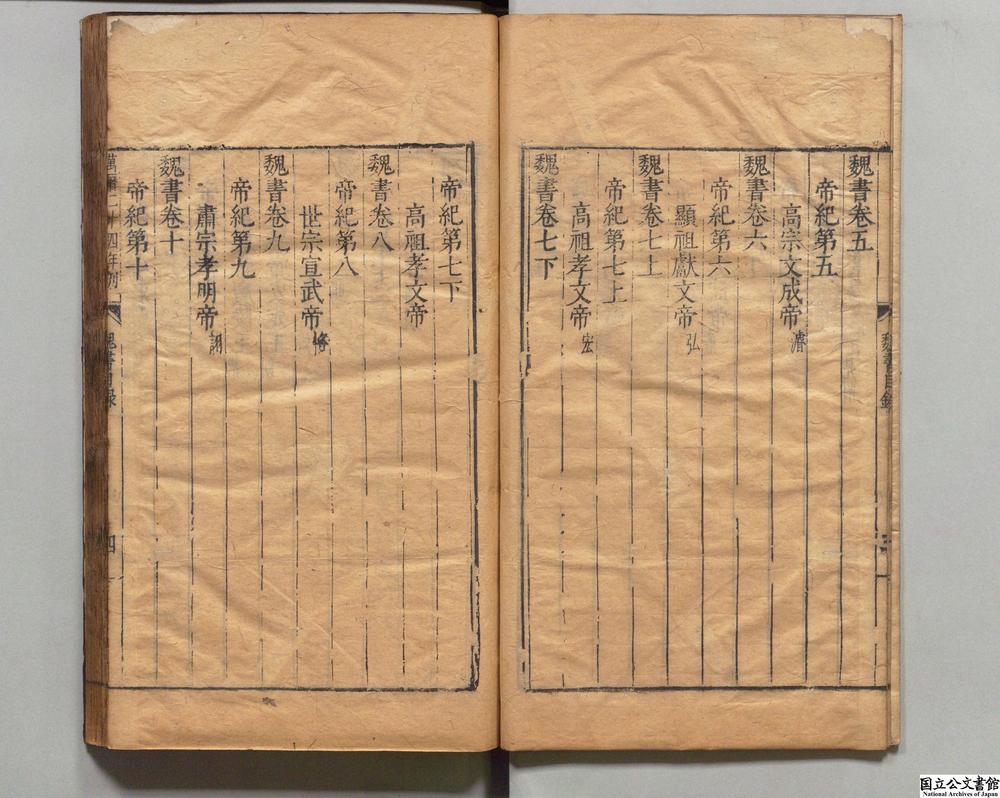 魏書卷五
帝紀第五
高宗文成帝 濬
魏書卷六
帝紀第六
顯祖獻文帝 弘
魏書卷七上
帝紀第七上
高祖孝文帝 宏
魏書卷七下
帝紀第七下
高祖孝文帝
魏書卷八
帝紀第八
世宗宣武帝 恪
魏書卷九
帝紀第九
肅宗孝明帝 詡
魏書卷十
帝紀第十
魏書目錄
魏書目錄
四
国立公文書館
National Archives of Japan